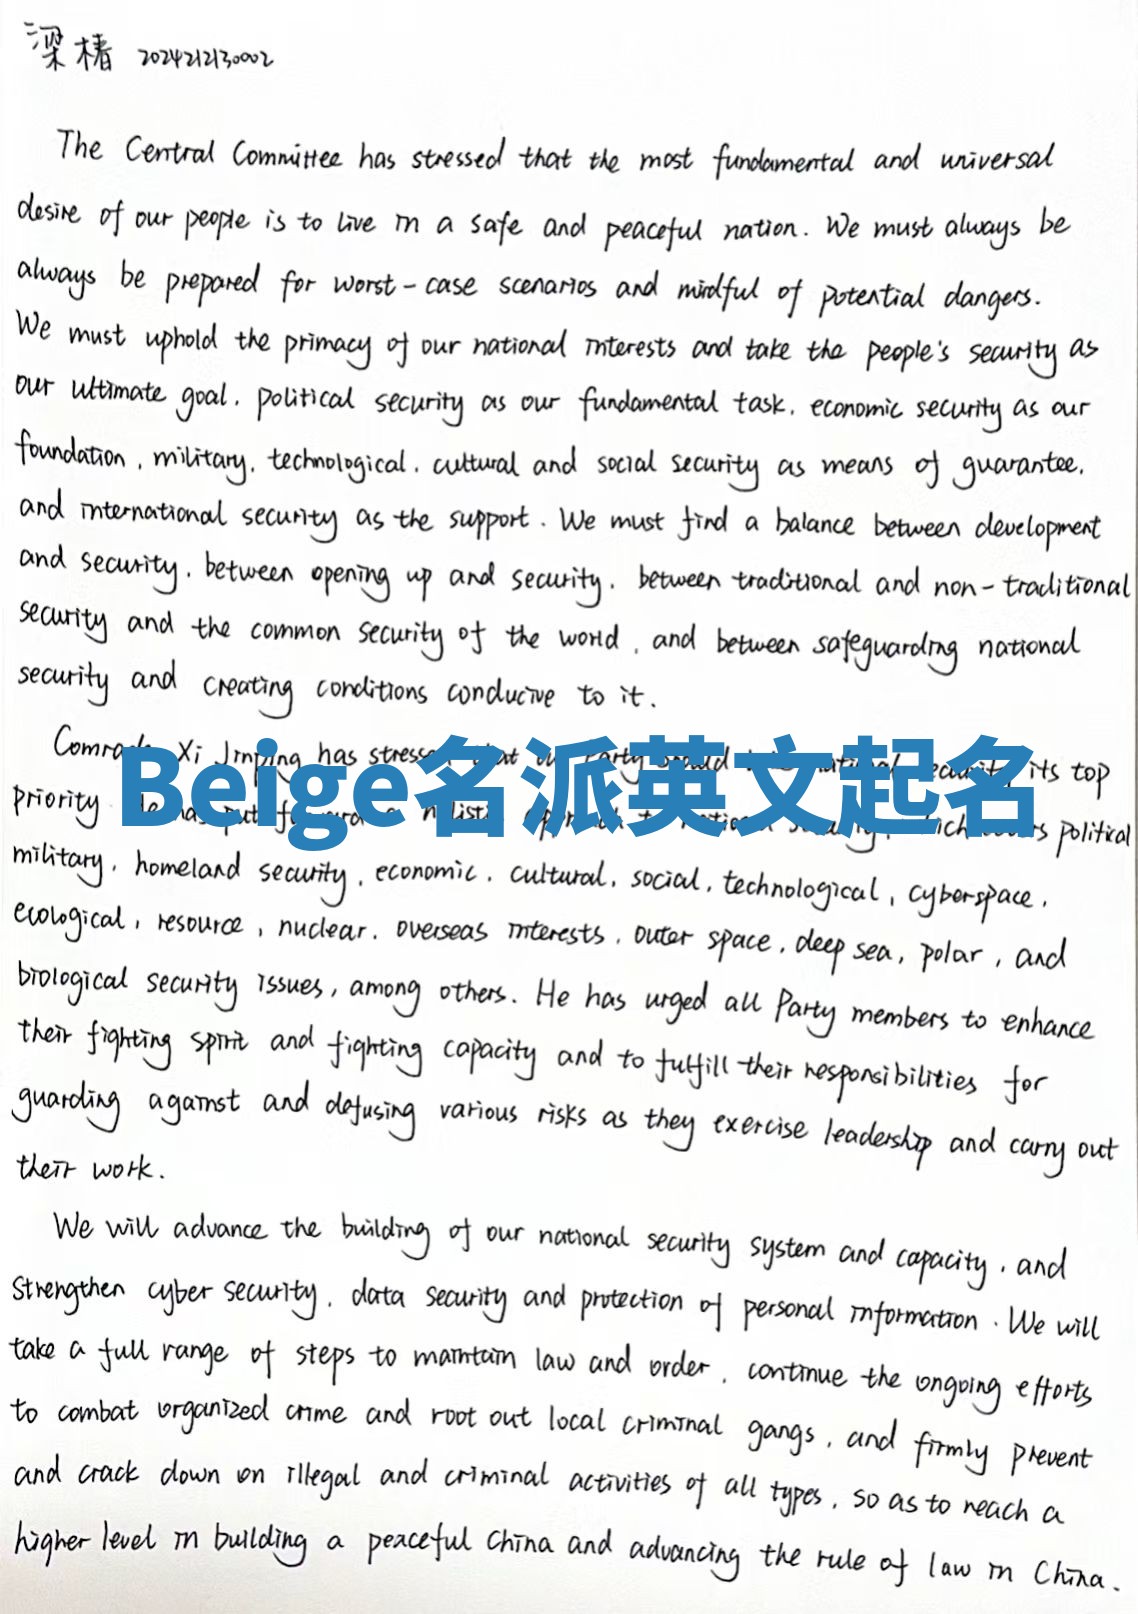 梁椿 2024212130002
The Central Committee has stressed that the most fundamental and universal
desire of our people is to live in a safe and peaceful nation. We must always be
always be prepared for worst-case scenarios and mindful of potential dangers.
We must uphold the primacy of our national interests and take the people's security as
our ultimate goal, political security as our fundamental task, economic security as our
foundation, military, technological, cultural and social security as means of guarantee,
and international security as the support. We must find a balance between development
and security, between opening up and security, between traditional and non-traditional
security and the common security of the world, and between safeguarding national
security and creating conditions conducive to it.
Xi Jinping has its top
Beige名派英文起名
priority political
military, homeland security, economic, cultural, social, technological, cyberspace,
ecological, resource, nuclear, overseas interests, outer space, deep sea, polar, and
biological security issues, among others. He has urged all Party members to enhance
their fighting spirit and fighting capacity and to fulfill their responsibilities for
guarding against and defusing various risks as they exercise leadership and carry out
their work.
We will advance the building of our national security system and capacity, and
strengthen cyber security, data security and protection of personal information. We will
take a full range of steps to maintain law and order, continue the ongoing efforts
to combat organized crime and root out local criminal gangs, and firmly prevent
and crack down on illegal and criminal activities of all types, so as to reach a
higher level in building a peaceful China and advancing the rule of law in China.